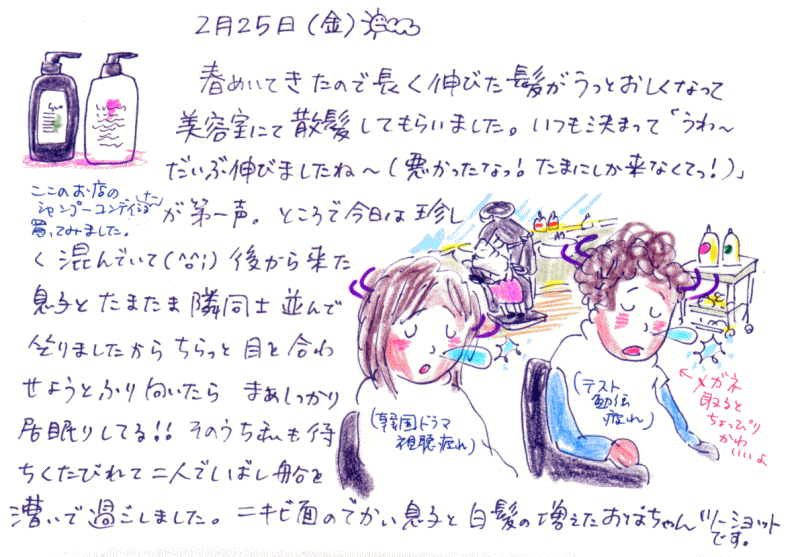 2月25日(金)
春めいてきたので長く伸びた髪がうっとおしくなって
美容室にて散髪してもらいました。いつも決まって「うわ～
だいぶ伸びましたね～(悪かったなっ!たまにしか来なくてっ!)」
が第一声。ところで今日は珍し
く混んでいて(^o^;)後から来た
息子とたまたま隣同士並んで
坐りましたからちらっと目を合わ
せようとふり向いたら まぁしっかり
居眠りしてる!! そのうち私も待
ちくたびれて二人でしばし船を
漕いで過ごしました。ニキビ面のでかい息子と白髪の増えたおばちゃんツーショット
です。
ここのお店の
シャンプーコンディショナー
買ってみました。
(韓国ドラマ
視聴疲れ)
(テスト
勉強
疲れ)
←メガネ
取ると
ちょっぴり
かわ
いいよ